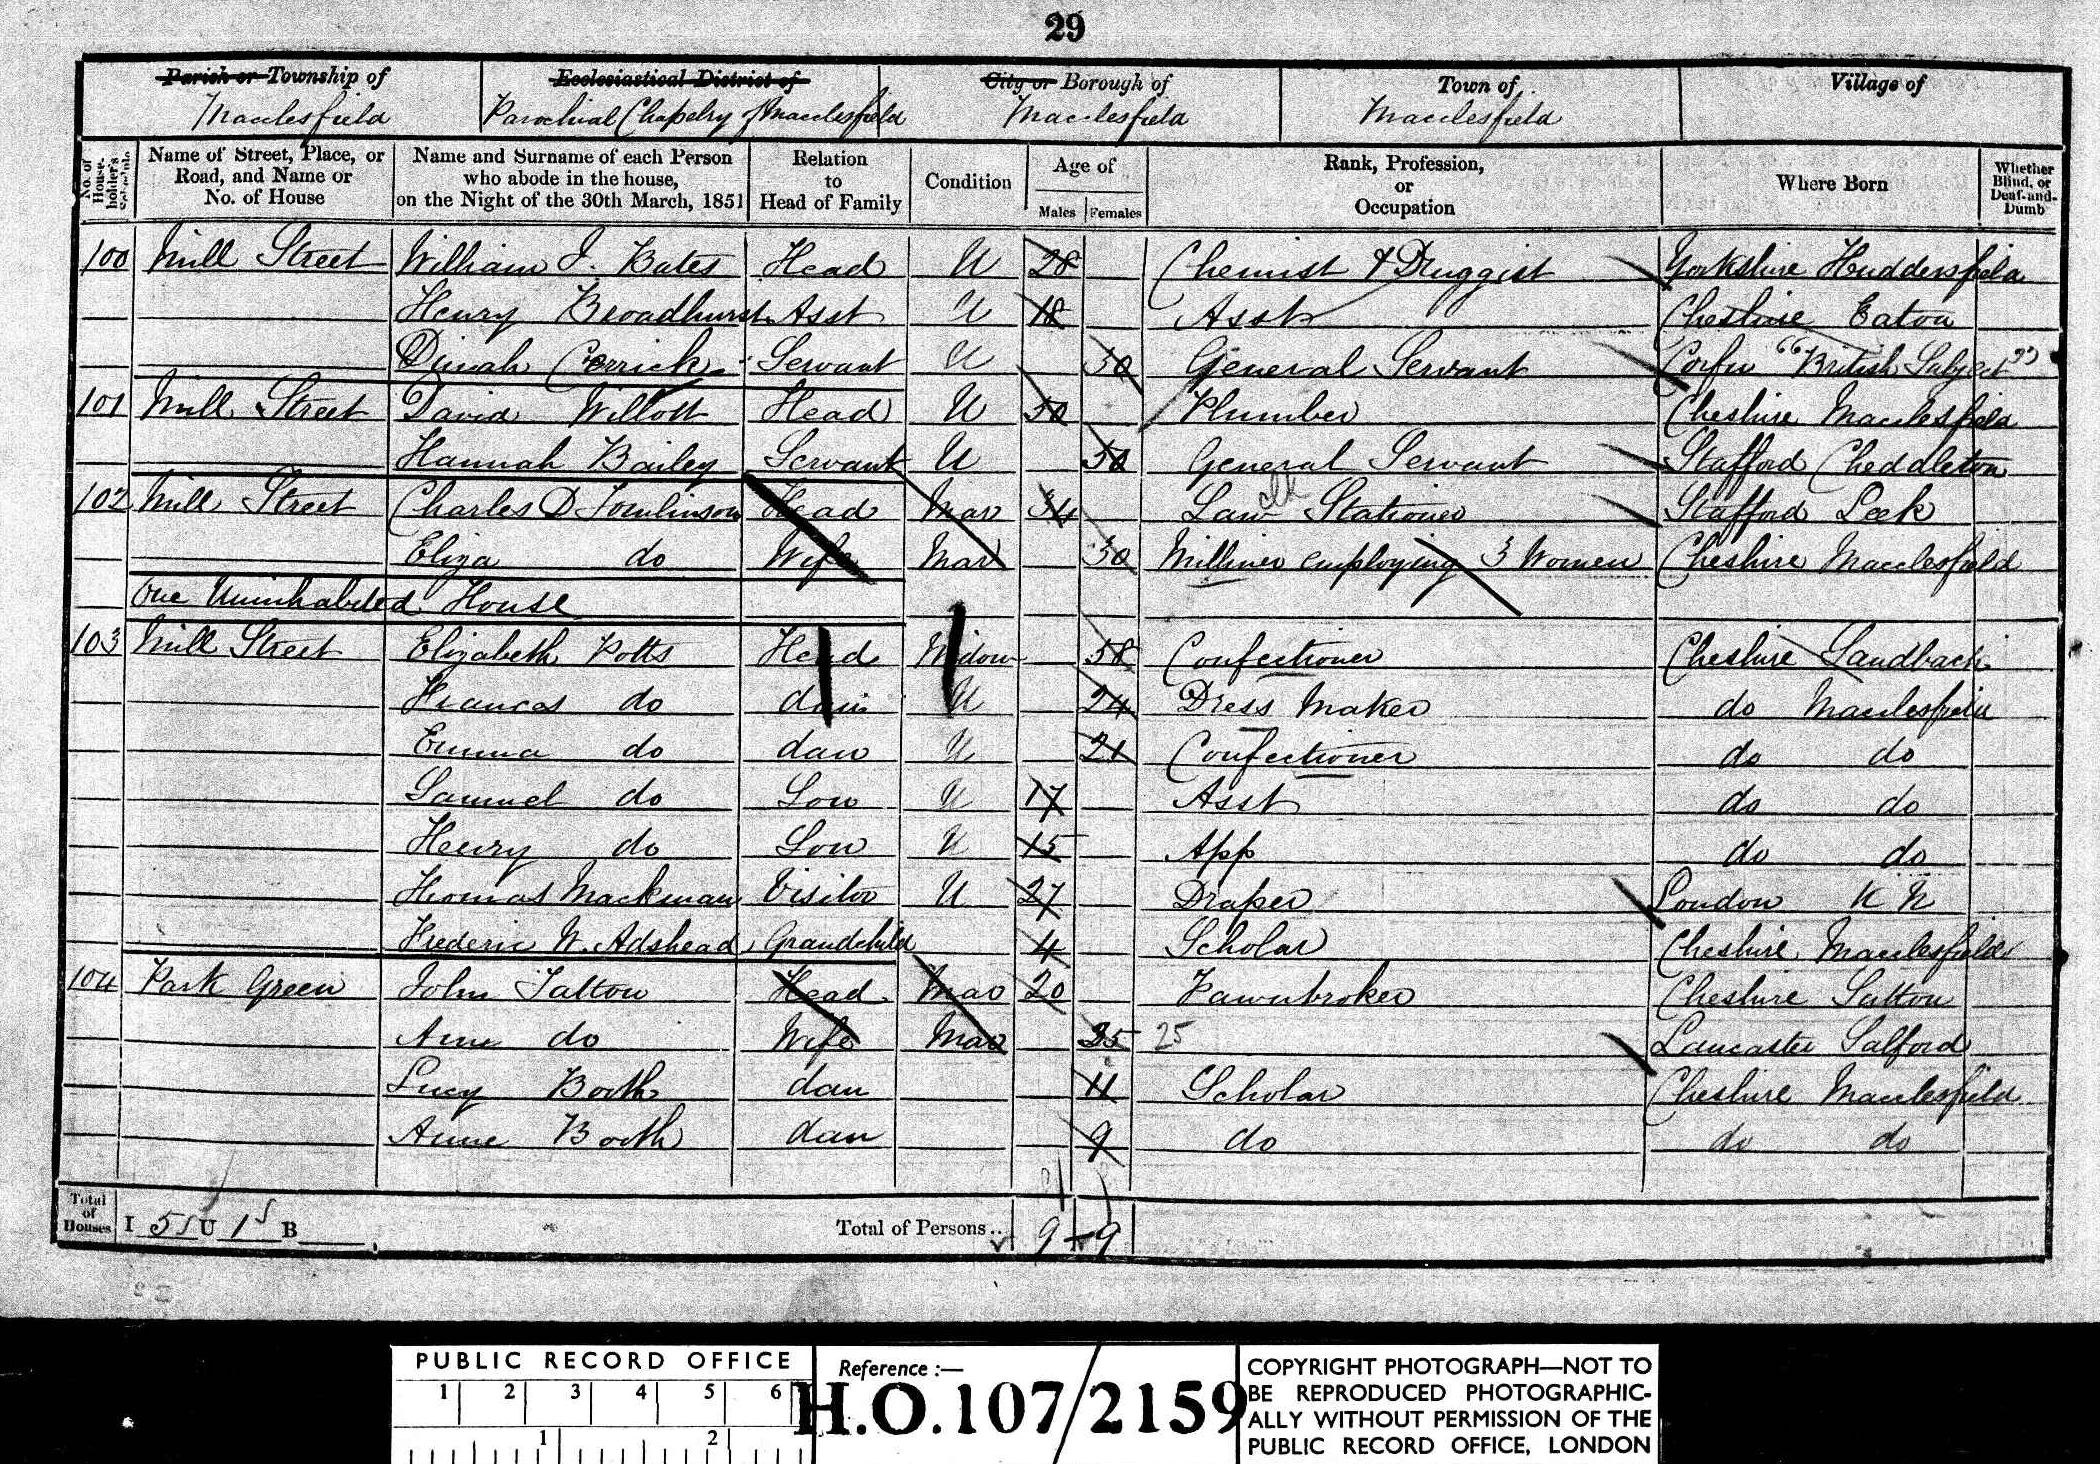 29
Parish or Township of Ecclesiastical District of City or Borough of Town of Village of
Macclesfield Parochial Chapelry of Macclesfield Macclesfield Macclesfield
No. of House-holder's Schedule Name of Street, Place, or Road, and Name or No. of House Name and Surname of each Person who abode in the house, on the Night of the 30th March, 1851 Relation to Head of Family Condition Age of Males Females Rank, Profession, or Occupation Where Born Whether Blind, or Deaf-and-Dumb
100 Mill Street William J. Bates Head U 28 Chemist & Druggist Yorkshire Huddersfield
Henry Broadhurst Asst U 18 Asst Cheshire Eaton
Dinah Cerrick Servant U 30 General Servant Corfu "British Subject"
101 Mill Street David Willott Head U 50 Plumber Cheshire Macclesfield
Hannah Bailey Servant U 50 General Servant Stafford Cheddleton
102 Mill Street Charles D Tomlinson Head Mar 34 Law clk Stationer Stafford Leek
Eliza do Wife Mar 30 Milliner employing 3 Women Cheshire Macclesfield
One Uninhabited House
103 Mill Street Elizabeth Potts Head Widow 58 Confectioner Cheshire Sandbach
Frances do dau U 24 Dress Maker do Macclesfield
Emma do dau U 21 Confectioner do do
Samuel do Son U 17 Asst do do
Henry do Son U 15 App do do
Thomas Mackman Visitor U 27 Draper London N K
Frederic W. Adshead Grandchild 4 Scholar Cheshire Macclesfield
104 Park Green John Tatton Head Mar 20 Pawnbroker Cheshire Sutton
Ann do Wife Mar 35 25 Lancaster Salford
Lucy Booth dau 11 Scholar Cheshire Macclesfield
Anne Booth dau 9 do do do
Total of Houses I 5 U 1 B Total of Persons.. 9 9
PUBLIC RECORD OFFICE
1 2 3 4 5 6
1 2
Reference :—
H.O.107/2159
COPYRIGHT PHOTOGRAPH—NOT TO
BE REPRODUCED PHOTOGRAPHIC-
ALLY WITHOUT PERMISSION OF THE
PUBLIC RECORD OFFICE, LONDON